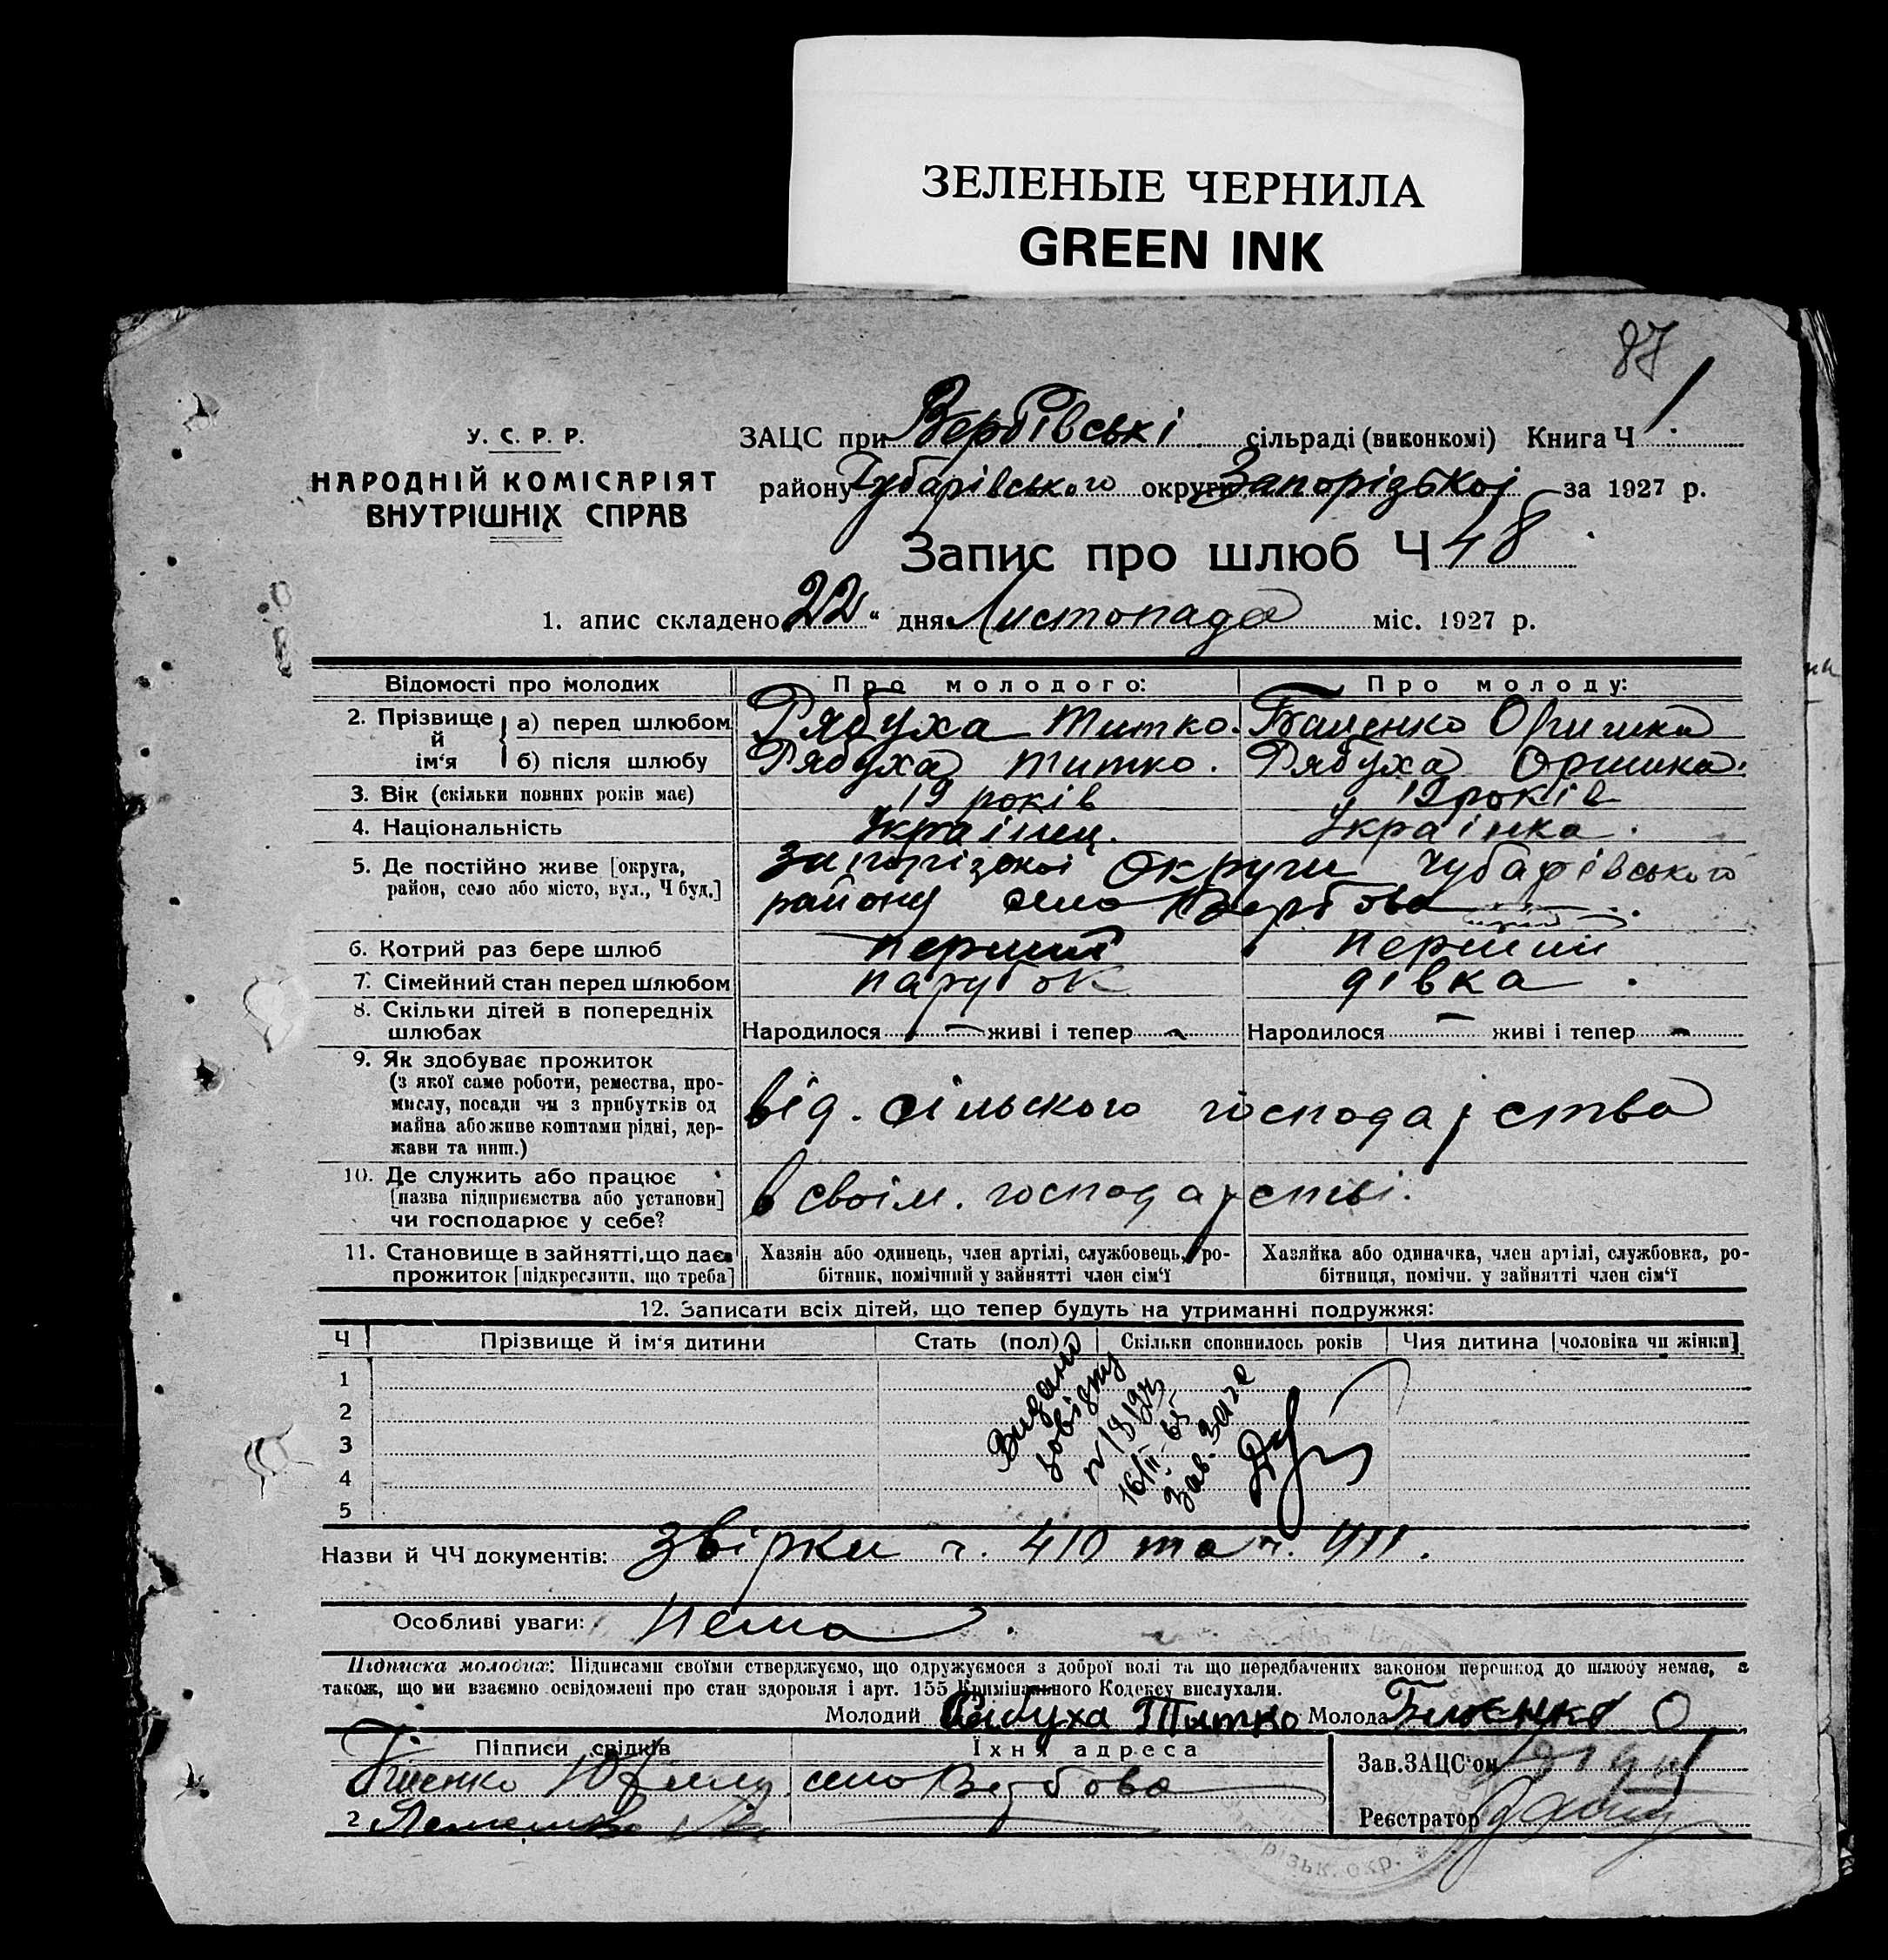 ЗЕЛЕНЫЕ ЧЕРНИЛА
GREEN INK
87
У. С. Р. Р.
НАРОДНІЙ КОМІСАРІЯТ
ВНУТРІШНІХ СПРАВ
ЗАЦС при Вербівські сільраді (виконкомі) Книга Ч 1.
району Чубарівського округи Запорізькоі за 1927 р.
Запис про шлюб Ч 48
1. апис складено 22 " дня Листопада міс. 1927 р.
Відомості про молодих Про молодого: Про молоду:
2. Прізвище й ім'я
а) перед шлюбом Рябуха Титко. Оришка
б) після шлюбу Рябуха Титко. Рябуха Оришка.
3. Вік (скільки повних років має) 19 років 19 років
4. Національність Украінец. Украінка.
5. Де постійно живе [округа, район, село або місто, вул., Ч буд.] Запорізкоі Округи Чубарівського
району село Вербова
6. Котрий раз бере шлюб перший перший
7. Сімейний стан перед шлюбом парубок дівка.
8. Скільки дітей в попередніх шлюбах Народилося – живі і тепер – Народилося – живі і тепер –
9. Як здобуває прожиток
(з якої саме роботи, ремества, про-
мислу, посади чи з прибутків од
майна або живе коштами рідні, дер-
жави та инш.)
від. сільского господарства
10. Де служить або працює
[назва підприємства або установи]
чи господарює у себе?
в своім. господарстві.
11. Становище в зайнятті, що дає
прожиток [підкреслити, що треба]
Хазяін або одинець, член артілі, службовець, ро-
бітник, помічний у зайнятті член сім'ї
Хазяйка або одиначка, член артілі, службовка, ро-
бітниця, помічн. у зайнятті член сім'ї
12. Записати всіх дітей, що тепер будуть на утриманні подружжя:
Ч Прізвище й ім'я дитини Стать (пол) Скільки сповнилось років Чия дитина [чоловіка чи жінки]
1
2
3
4
5
Видано
довідку
16/II-65
Зав. Загс
Назви й ЧЧ документів: Звірки ч. 410 та ч. 411.
Особливі уваги: Нема.
Підписка молодих: Підписами своїми стверджуємо, що одружуємося з доброї волі та що передбачених законом перешкод до шлюбу немає, а
також, що ми взаємно освідомлені про стан здоровля і арт. 155 Кримінального Кодексу вислухали.
Молодий Рябуха Титко Молода О
Підписи свідків Їхня адреса
село Вербова
2
Зав. ЗАЦС'ом
Реєстратор